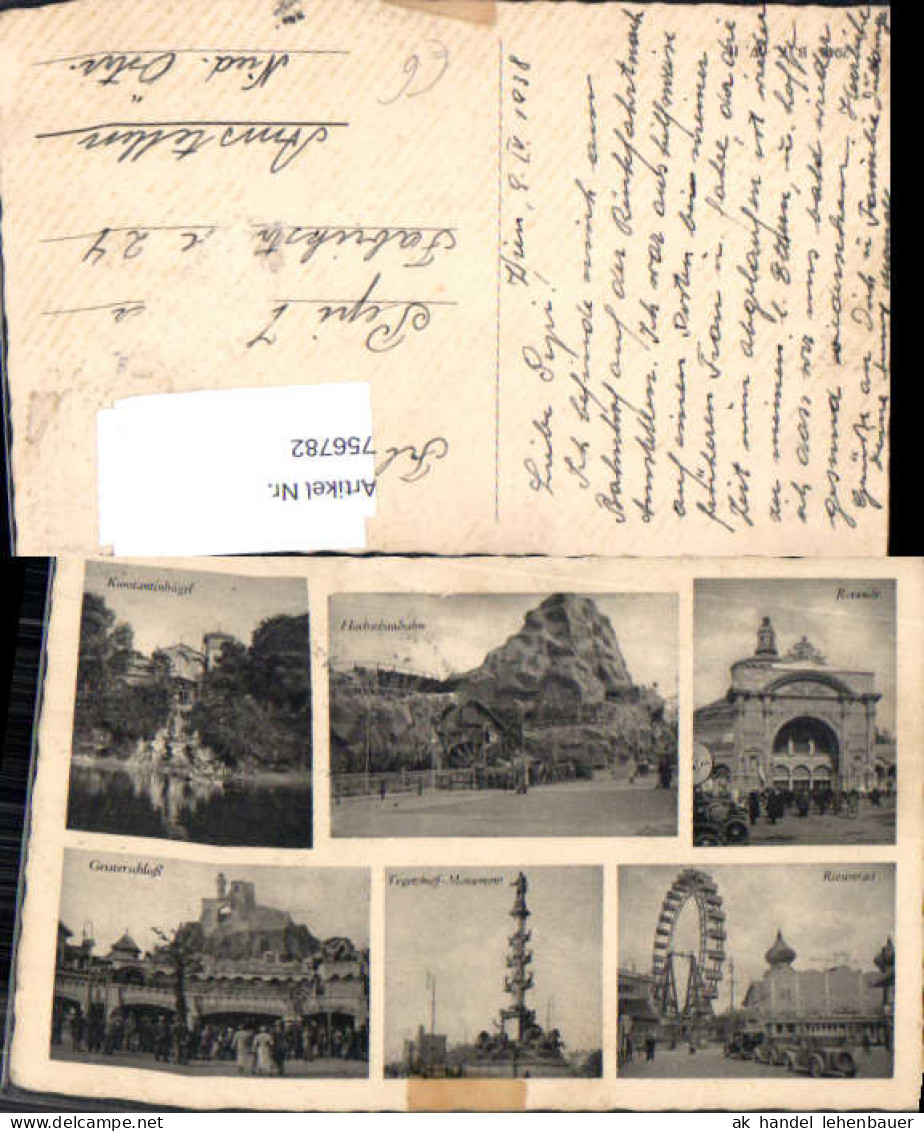 Wien, 9. VI 1938
Liebe Pepi!
Ich befinde mich am
Bahnhof auf der Rückfahrt nach
Amstetten. Ich war aushilfsweise
auf einen Posten bei meiner
früheren Frau u. fahre da die
Zeit nun abgelaufen ist wieder
zu meinen l. Eltern, u. hoffe
ich dass wir uns bald wieder
gesund wiedersehen. Herzliche
Grüße an Dich u. Familie
Frl
Pepi
Fabrikstr 24
Amstetten
Nied. Östr.
Artikel Nr.
756782
Konstantinhügel
Hochschaubahn
Rotunde
Geisterschloß
Tegetthoff-Monument
Riesenrad
ak handel lehenbauer